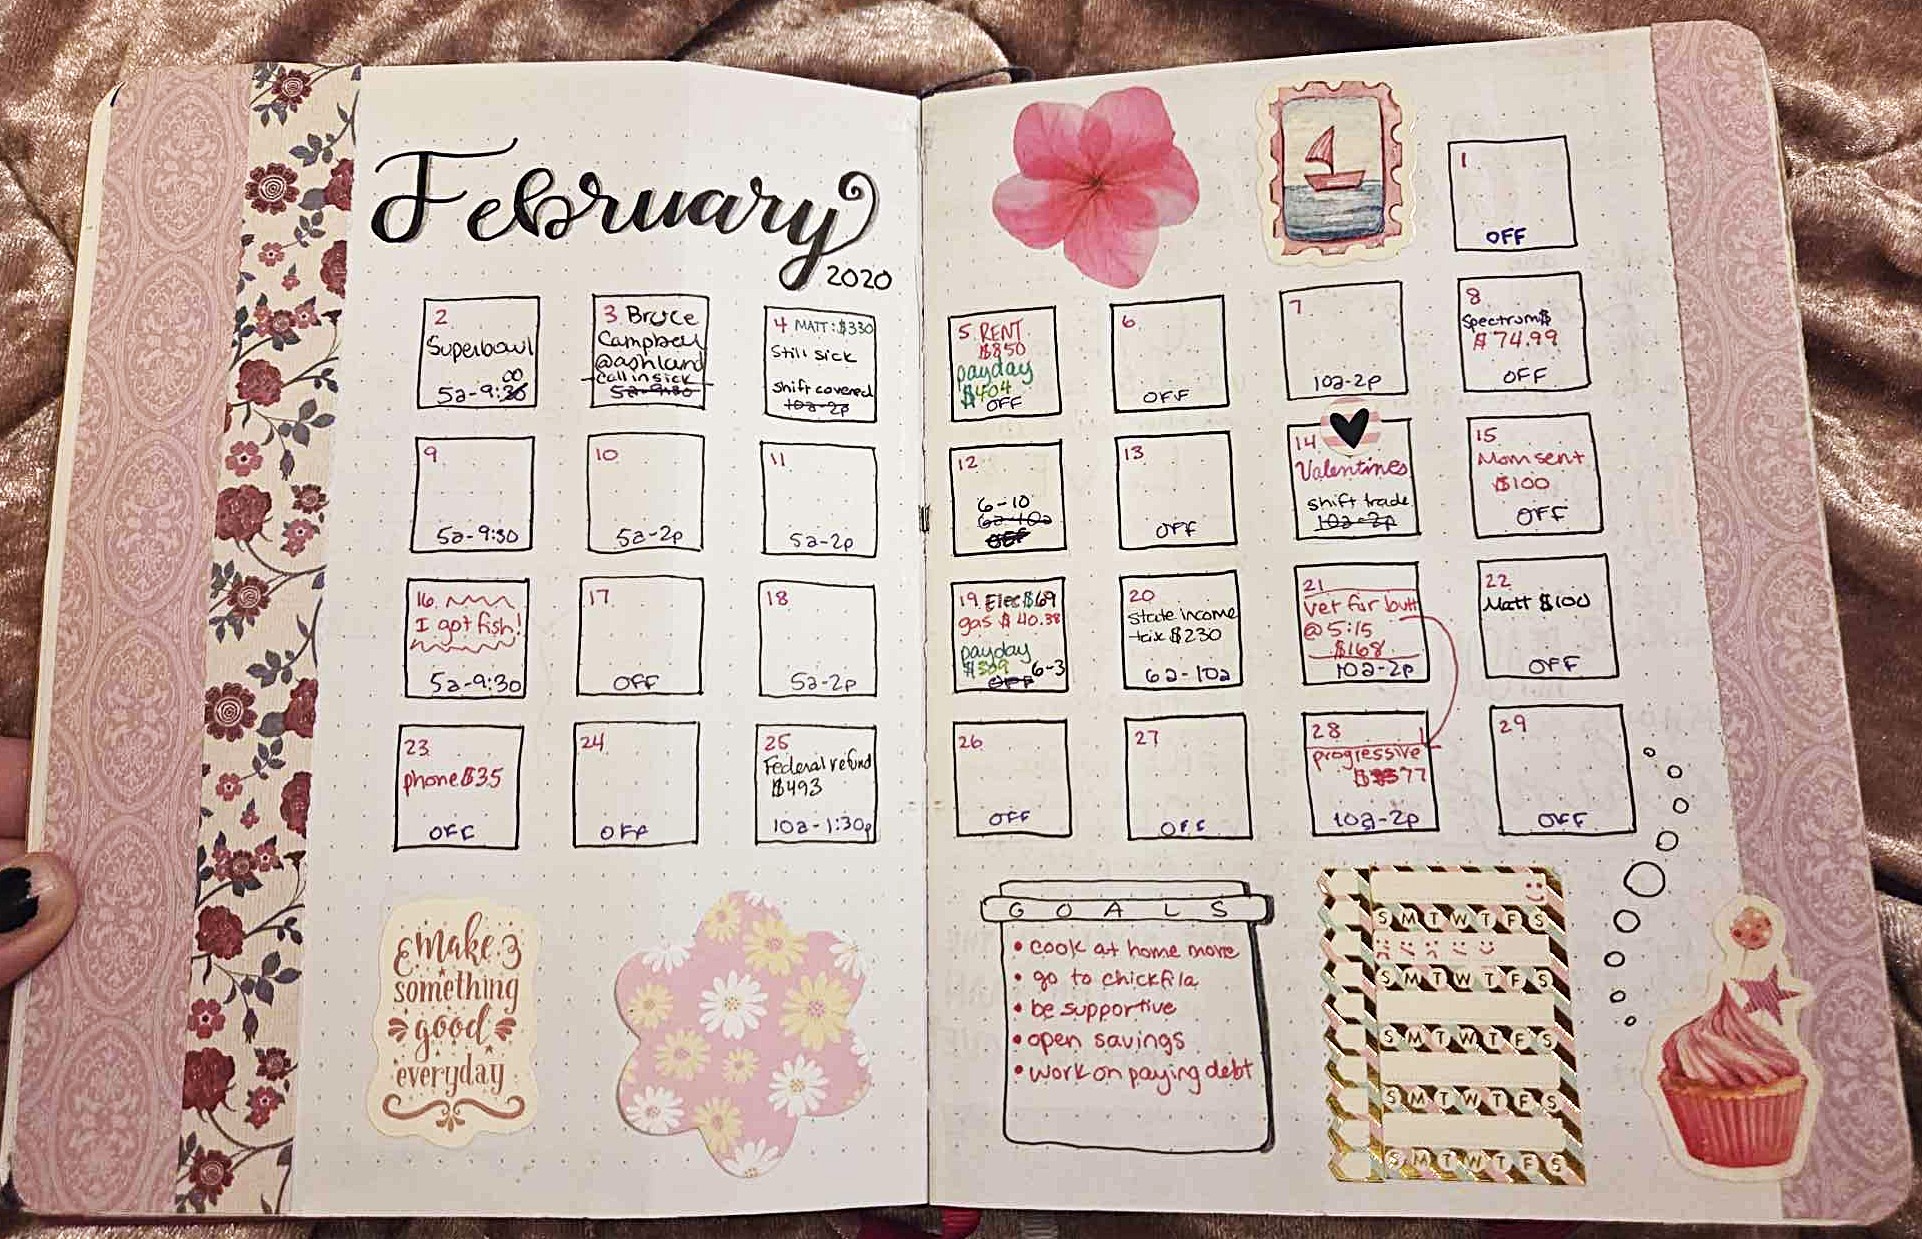 February
2020
1
OFF
2
Superbowl
00
5a-9:30
3 Bruce
Campbell
@ashland
call in sick
5a-9:30
4 MATT: $330
Still sick
shift covered
10a-2p
5 RENT
$850
payday
$404
OFF
6
OFF
7
10a-2p
8
Spectrum$
$74.99
OFF
9
5a-9:30
10
5a-2p
11
5a-2p
12
6-10
6a-10a
OFF
13
OFF
14
Valentines
shift trade
10a-2p
15
Mom sent
$100
OFF
16
I got fish!
5a-9:30
17
OFF
18
5a-2p
19 Elec $69
gas $40.38
payday
$309
OFF 6-3
20
State income
tax $230
6a-10a
21
Vet fur butt
@ 5:15
$168
10a-2p
22
Matt $100
OFF
23
phone $35
OFF
24
OFF
25
Federal refund
$493
10a-1:30p
26
OFF
27
OFF
28
progressive
$77
10a-2p
29
OFF
make
something
good
everyday
GOALS
• cook at home more
• go to chickfila
• be supportive
• open savings
• work on paying debt
S M T W T F S
S M T W T F S
S M T W T F S
S M T W T F S
S M T W T F S